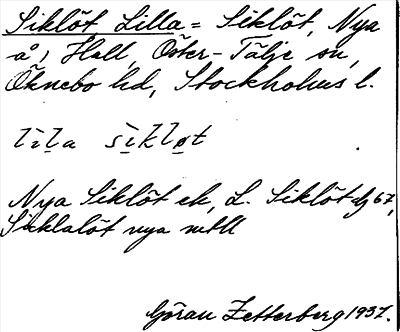 Siklöt, Lilla = Siklöt, Nya
å, Hall, Öster-Tälje sn,
Öknebo hd, Stockholms l.
lìl̥a sìkløt
Nya Siklöt ek, L. Siklöt dj 67,
Sicklalöt nya mtll
Göran Zetterberg 1937.